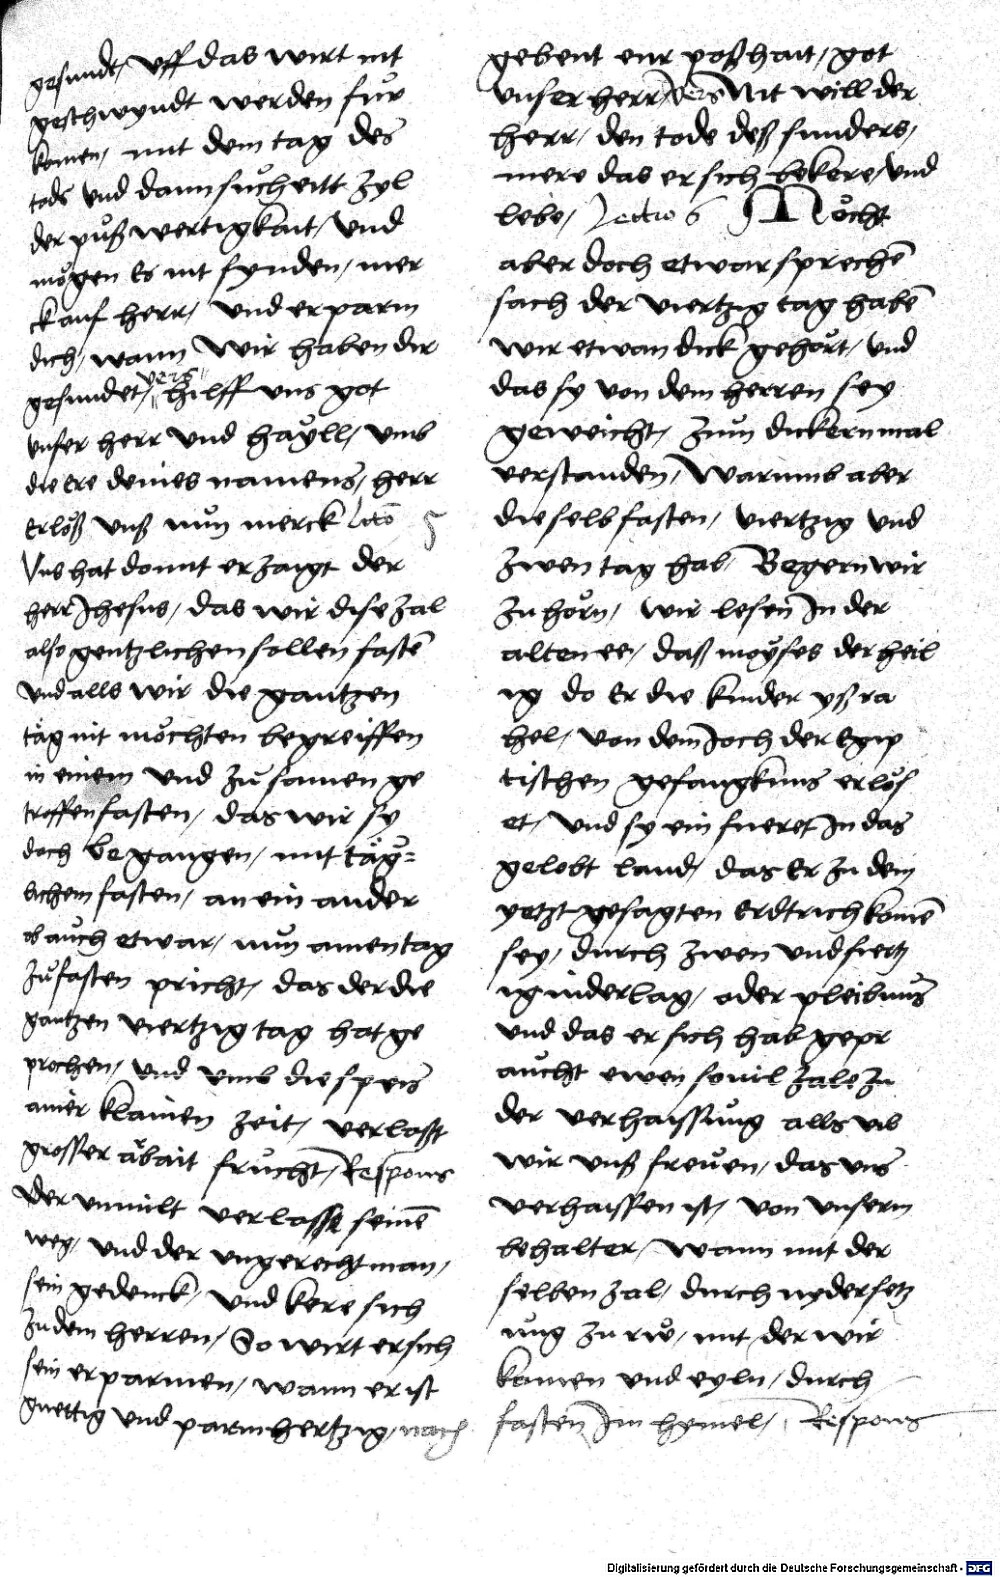 gesundt, vff das wirt nit
geschwyndt werden für
komen, mit dem tag des
tods vnd dann sucheitt zyl
der pußwertigkait, vnd
mögen es nit fynden, mer
ck auf herr, vnd erparm
dich, wann wir haben dir
gesundet, vers hilff vns got
vnser herr vnd hayll, vmb
die ere deines namens, herr
erlöß vnß nun merck lcio 5
Vns hat domit erzaigt der
herr Jhesus, das wir dise zal
also gentzlichen sollen fastē
vnd alls wir die gantzen
täg nit möchten begreiffen
in einem vnd zu samen ge
troffen fasten, das wir sy
doch begangen, mit täg=
lichem fasten, an ein ander
ob auch etwar, nun amen tag
zu fasten pricht, das der die
gantzen viertzig tag hat ge
prochen, vnd vmb die speis
ainer klainen zeit, verlasst
grosser arbait frucht, Respons
Der vnmilt verlasse seinē
weg, vnd der vngerecht man,
sein gedenck, vnd kere sich
zu dem herren, So wirt er sich
sein erparmen, wann er ist
guettig vnd parmhertzig, nach
gebent eur poßhait, got
vnser herr, vers Nit will der
herr, den tode deß sunders,
mere das er sich bekere, vnd
lebe, Lectio 6 Möcht
aber doch etwar sprechē
sach der viertzig tag habē
wir etwan dick gehört, vnd
das sy von dem herren sey
geweicht, zum dickern mal
verstanden, Warumb aber
die selb fasten, viertzig vnd
zwen tag hab, Begern wir
zu hörn, wir lesen In der
alten ee, daß moyses der heil
ig do er die kinder yßra
hel, von dem Joch der Egip
tischen gefangknus erlös
et, vnd sy ein fueret In das
gelobt land, das er zu dem
yetzt gesagten erdtrich komē
sey, durch zwen vnd fiertz
ig niderlag, oder pleibnus
vnd das er sich hab gepr
aucht ewen souil zale zu
der verhaissung alls vil
wir vnß freuen, das vns
verhaissen ist, von vnserm
behalter, wann mit der
selben zal, durch nydersetz
ung zu rw, mit der wir
kamen vnd eyln, durch
fasten Im hymel, Respons
Digitalisierung gefördert durch die Deutsche Forschungsgemeinschaft - DFG